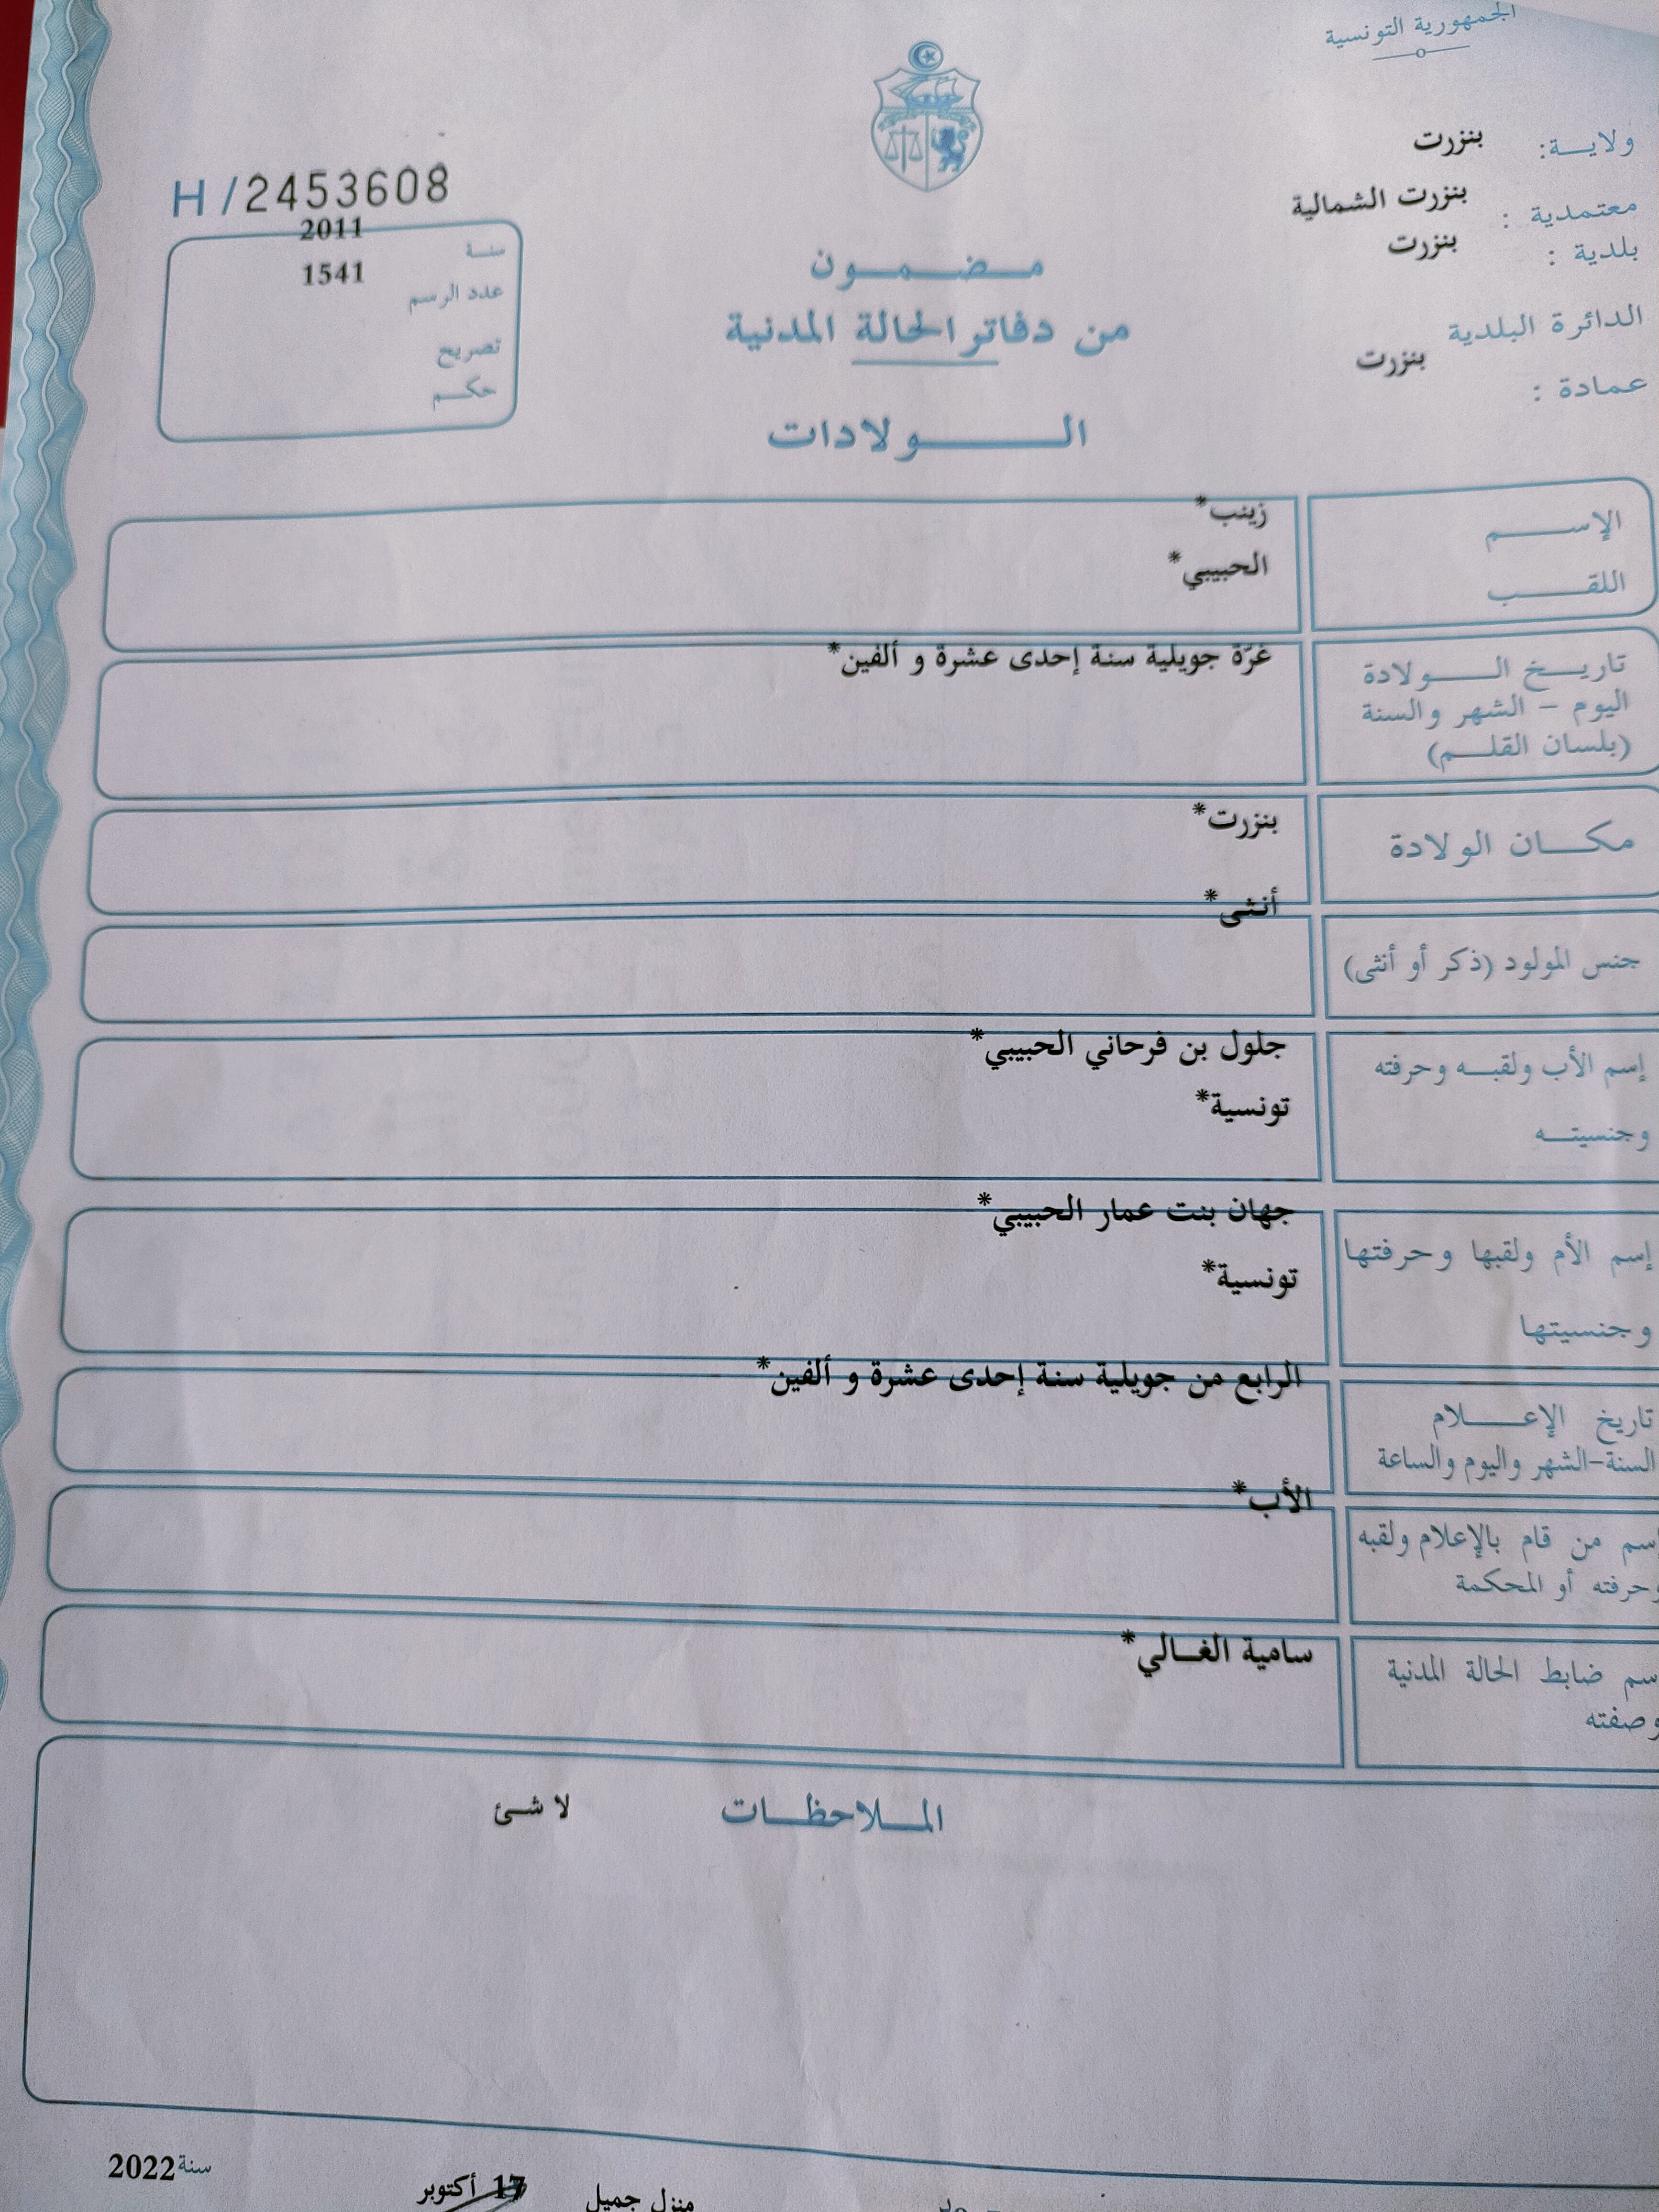 الجمهورية التونسية
ولاية: بنزرت
معتمدية : بنزرت الشمالية
بلدية : بنزرت
الدائرة البلدية
بنزرت
عمادة :
H/2453608
سنة 2011
عدد الرسم 1541
تصريح
حكم
مضمون
من دفاتر الحالة المدنية
الولادات
الإسم زينب*
اللقب الحبيبي*
تاريخ الولادة غرّة جويلية سنة إحدى عشرة و ألفين*
اليوم - الشهر والسنة
(بلسان القلم)
مكان الولادة بنزرت*
أنثى*
جنس المولود (ذكر أو أنثى)
إسم الأب ولقبه وحرفته جلول بن فرحاني الحبيبي*
وجنسيته تونسية*
إسم الأم ولقبها وحرفتها جهان بنت عمار الحبيبي*
وجنسيتها تونسية*
الرابع من جويلية سنة إحدى عشرة و ألفين*
تاريخ الإعلام
السنة-الشهر واليوم والساعة
الأب*
إسم من قام بالإعلام ولقبه
وحرفته أو المحكمة
إسم ضابط الحالة المدنية سامية الغالي*
وصفته
الملاحظات لا شئ
منزل جميل 17 أكتوبر سنة 2022